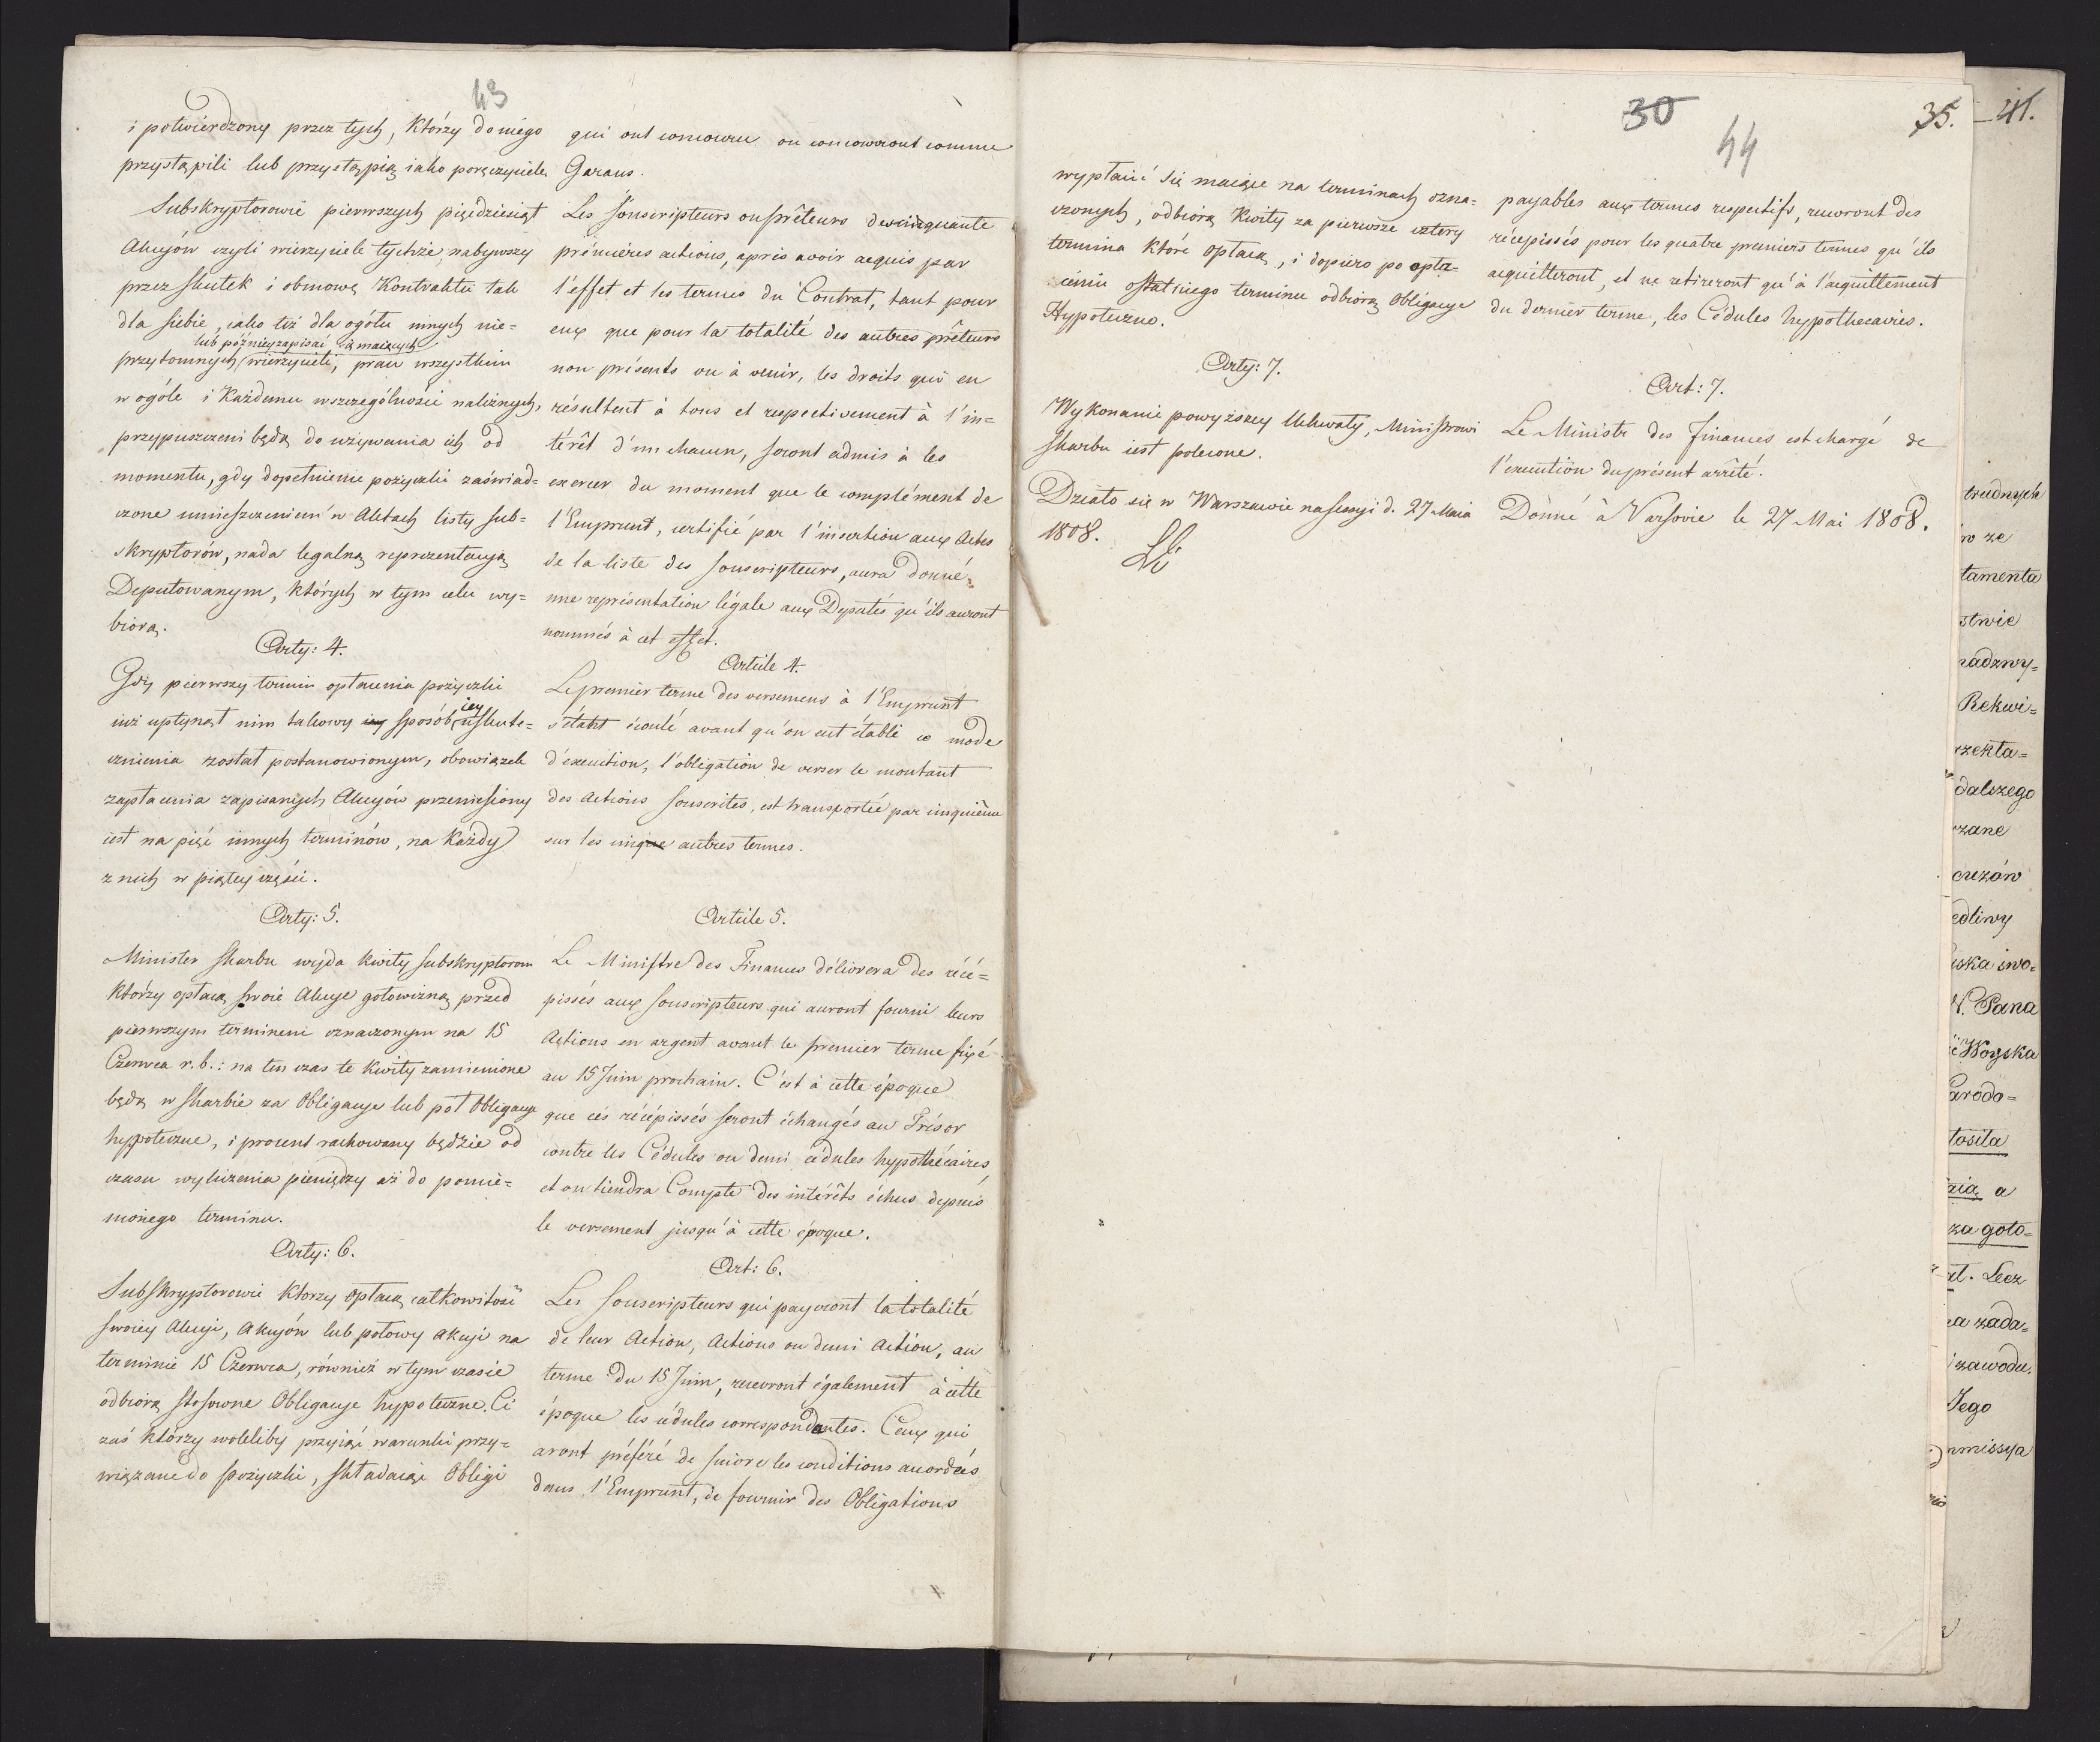 43
i potwierdzony przez tych, którzy do niego
przystąpili lub przystąpią iako poręczyciele.
Subskryptorowie pierwszych pięćdziesiąt
Akcyów czyli wierzyciele tychże, nabywszy
przez skutek i obmowę Kontraktu tak
dla siebie, iako też dla ogółu innych nie=
lub późniey zapisać się maiących
przytomnych wierzycieli, praw wszystkim
w ogóle i Każdemu w szczególności należnych,
przypuszczeni będą do używania ich od
momentu, gdy dopełnienie pożyczki zaświad=
czone umieszczeniem w Aktach listy sub=
skryptorów, nada legalną reprezentacyą
Deputowanym, których w tym celu wy=
biorą.
Arty: 4.
Gdy pierwszy termin opłacenia pożyczki
iuż upłynął nim takowy iey sposób iey uskute=
cznienia został postanowionym, obowiązek
zapłacenia zapisanych Akcyów przeniesiony
iest na pięć innych terminów, na Każdy
z nich w piątey części.
Arty: 5.
Minister Skarbu wyda kwity subskryptorom
Którzy opłacą swoie Akcye gotowizną przed
pierwszym terminem oznaczonym na 15
Czerwca r. b.: na ten czas te Kwity zamienione
będą w Skarbie za Obligacye lub pół Obligacye
hypoteczne, i procent rachowany będzie od
czasu wyliczenia pieniędzy aż do pomie=
nionego terminu.
Arty: 6.
Subskryptorowie Którzy opłacą całkowitość
swoiey Akcyi, Akcyów lub połowy Akcyi na
terminie 15 Czerwca, również w tym czasie
odbiorą stosowne Obligacye hypoteczne. Ci
zaś Którzy woleliby przyiąć warunki przy=
wiązane do pożyczki, składaiąc Obligi
qui ont concouru ou concourront comme
Garans.
Les souscripteurs ou prêteurs de cinquante
prémières actions, après avoir acquis par
l'effet et les termes du Contrat, tant pour
eux que pour la totalité des autres prêteurs
non présents ou à venir, les droits qui en
résultent à tous et respectivement à l'in=
térêt d'un chacun, seront admis à les
exercer du moment que le complément de
l'Emprunt, certifié par l'insertion aux Actes
de la liste des souscripteurs, aura donné
une représentation légale aux Députés qu'ils auront
nommés à cet effet.
Article 4.
Le premier terme des versemens à l'Emprunt
s'étant écoulé avant qu'on eut établi ce mode
d'éxécution, l'obligation de verser le montant
des Actions souscrites, est transportée par cinquième
sur les cinq autres termes.
Article 5.
Le Ministre des Finances délivrera des récé=
pissés aux souscripteurs qui auront fourni leurs
Actions en argent avant le premier terme fixé
au 15 Juin prochain. C'est à cette époque
que ces récépissés seront échangés au Trésor
contre les Cédules ou demi cédules hypothécaires,
et on tiendra Compte des intérêts échus depuis
le versement jusqu'à cette époque.
Art: 6.
Les souscripteurs qui payeront la totalité
de leur Action, Actions ou demi Action, au
terme du 15 Juin, recevront également à cette
époque les cédules correspondantes. Ceux qui
auront préféré de suivre les conditions accordées
dans l'Emprunt, de fournir des Obligations
30
44
35.
wypłacić się maiące na terminach ozna=
czonych, odbiorą Kwity za pierwsze cztery
termina które opłacą, i dopiero po opła=
ceniu ostatniego terminu odbiorą Obligacye
Hypoteczne.
Arty: 7.
Wykonanie powyższey Uchwały, Ministrowi
Skarbu iest polecone.
Działo się w Warszawie na sessyi d. 27 Maia
1808.
payables aux termes respectifs, recevront des
récépissés pour les quatre premiers termes qu'ils
acquitteront, et ne retireront qu'à l'acquittement
du dernier terme, les Cédules hypothecaires.
Art: 7.
Le Ministr des Finances est chargé de
l'execution du présent arrêté.
Donné à Varsovie le 27 Mai 1808.
41.
trudnych
ze
tamenta
stwie
nadzwy=
Rekwi=
rzekta=
dalszego
zane
edliwy
swo=
Pana
Woyska
arodo=
tosita
a
za goto=
Lecz
zada=
zawodu.
Jego
mmissya